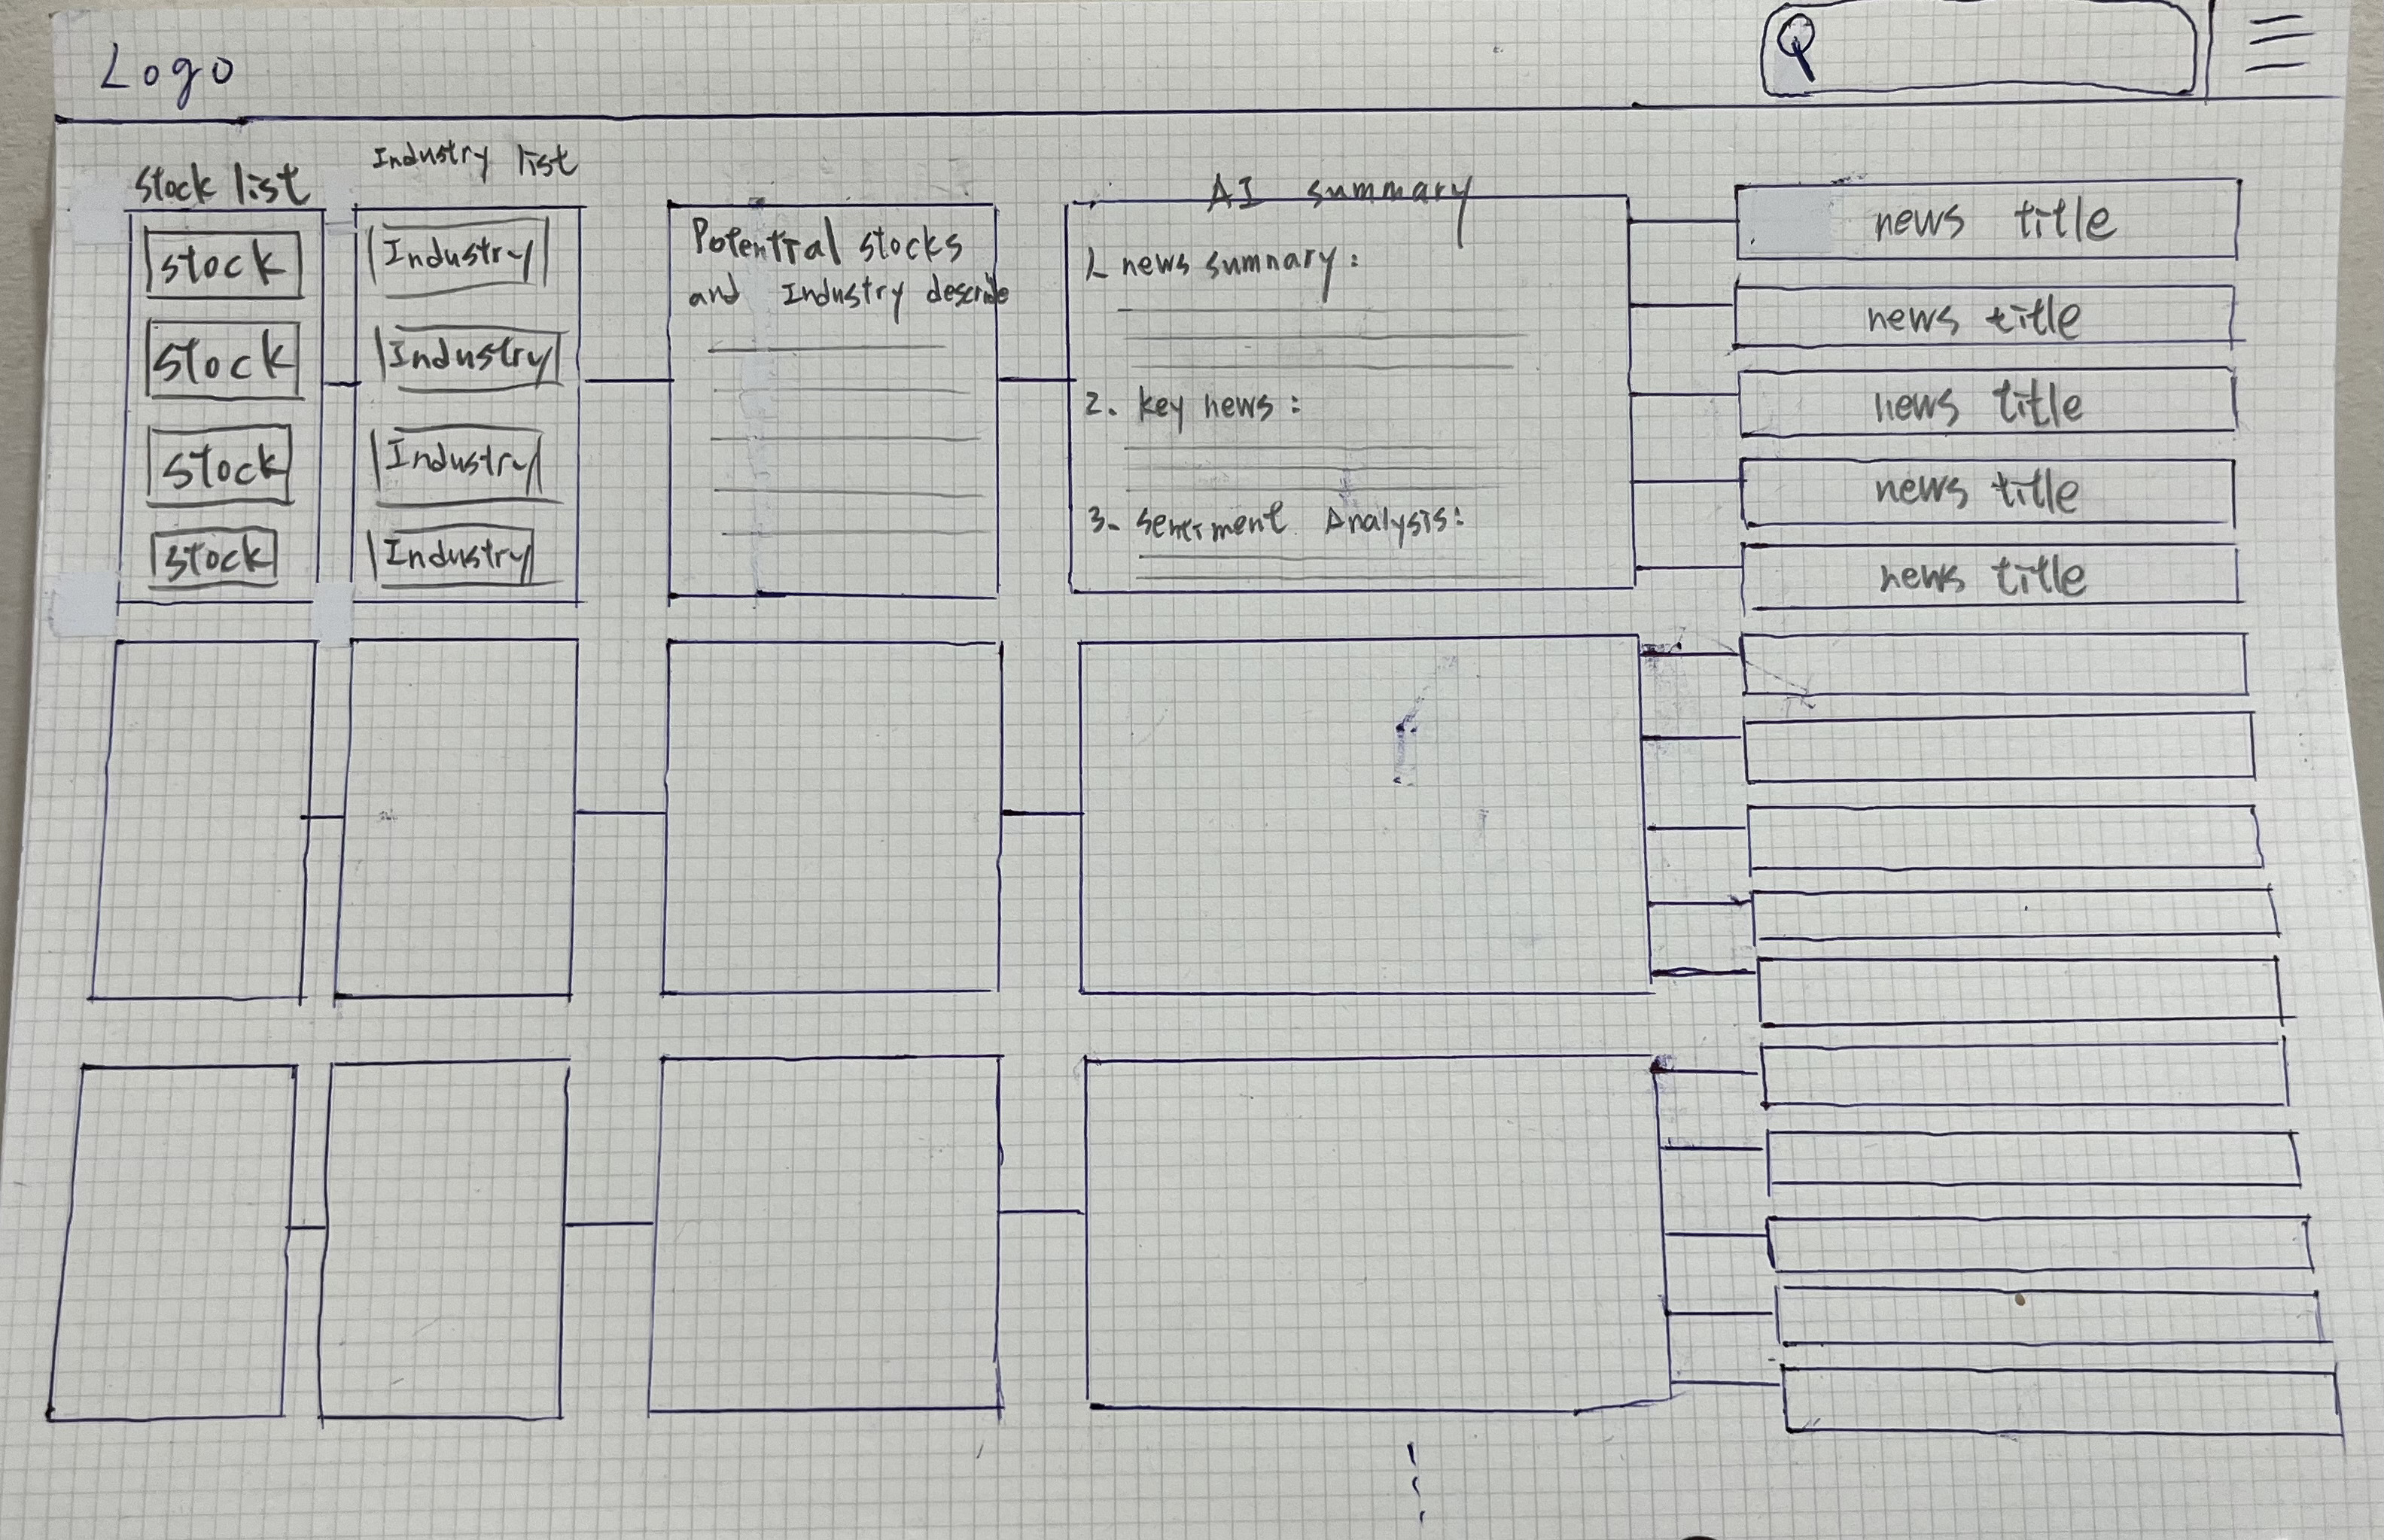 Logo
Stock list
Industry list
stock
stock
stock
stock
Industry
Industry
Industry
Industry
Potential stocks
and Industry describe
AI summary
1. news summary:
2. key news:
3. Sentiment Analysis:
news title
news title
news title
news title
news title